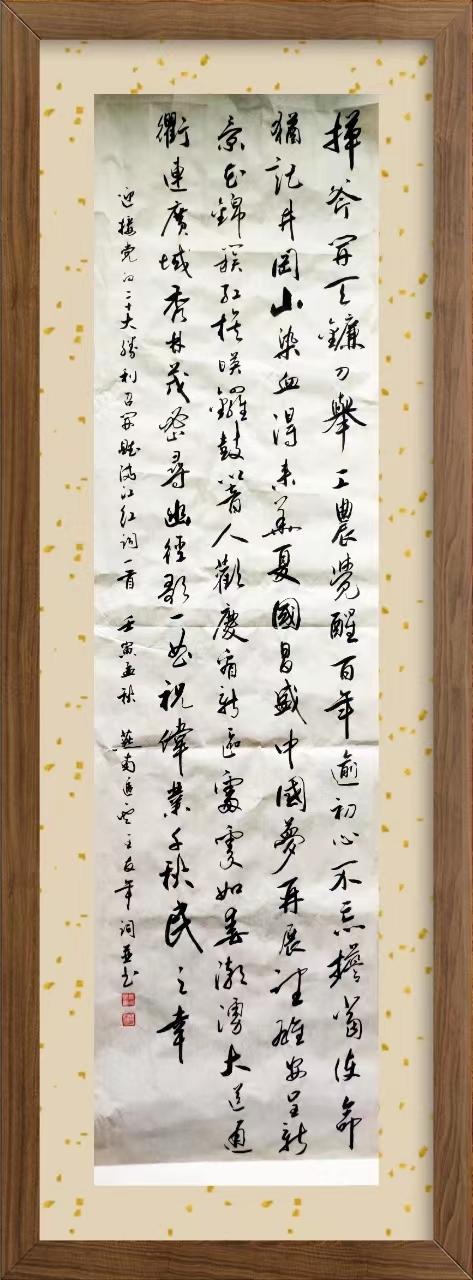 揮斧開天鐮刀舉工農覺醒百年逾初心不忘擔當使命
猶記井岡山染血得來華夏國昌盛中國夢再展望雄安呈新
景花錦簇紅旗映鑼鼓響人歡慶看新區處處如春潮湧大道通
衢連廣域秀林茂密尋幽徑歌一曲祝偉業千秋民之幸
迎接党的二十大勝利召開賦滿江紅詞一首 壬寅孟秋 燕南 王友年詞並书